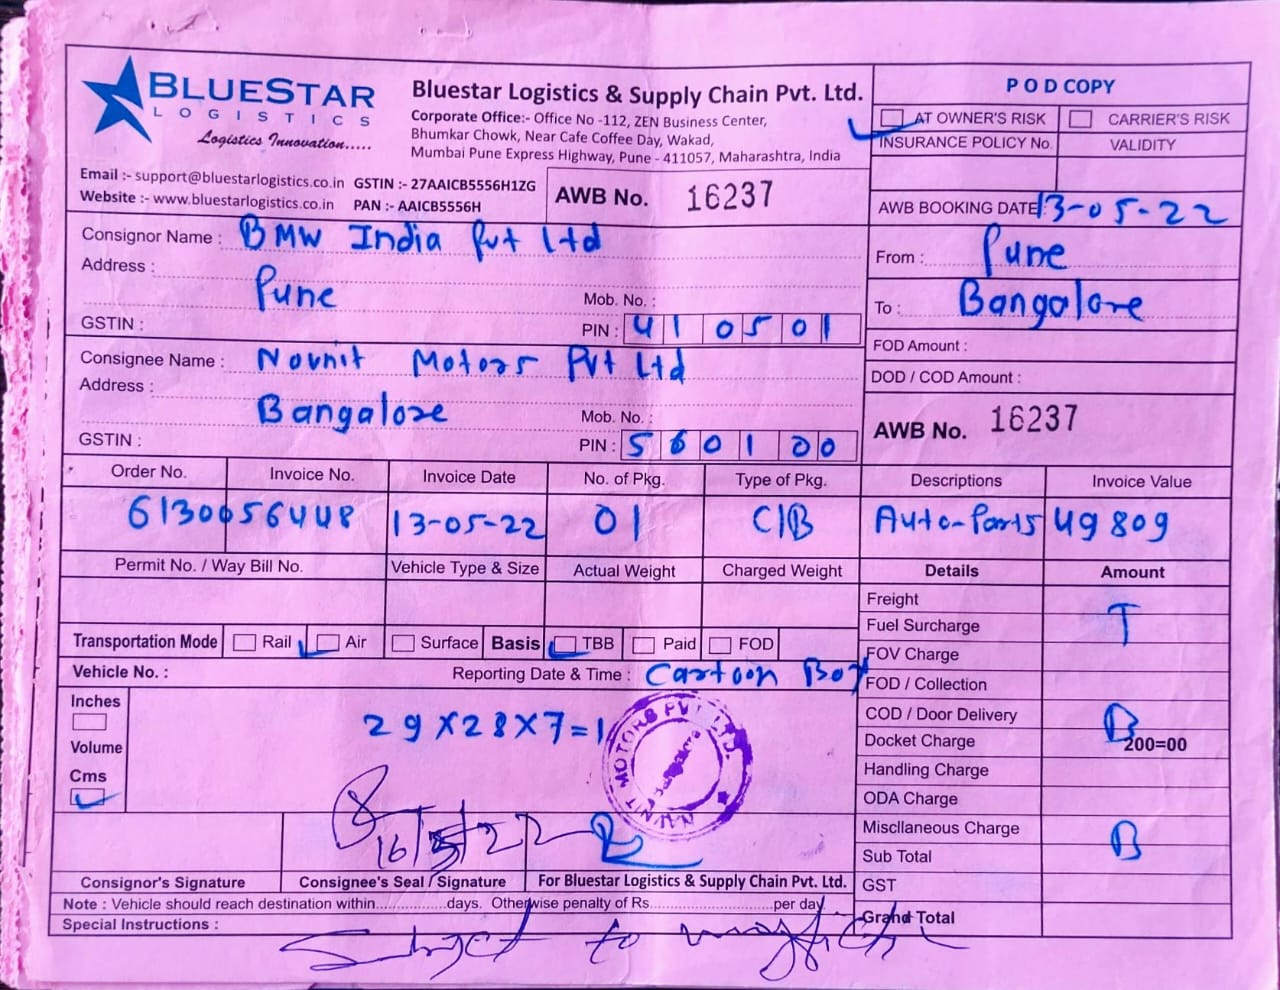 BLUESTAR
LOGISTICS
Logistics Innovation.....
Bluestar Logistics & Supply Chain Pvt. Ltd.
Corporate Office:- Office No -112, ZEN Business Center,
Bhumkar Chowk, Near Cafe Coffee Day, Wakad,
Mumbai Pune Express Highway, Pune - 411057, Maharashtra, India
Email :- support@bluestarlogistics.co.in GSTIN :- 27AAICB5556H1ZG
Website :- www.bluestarlogistics.co.in PAN :- AAICB5556H
AWB No. 16237
POD COPY
AT OWNER'S RISK CARRIER'S RISK
INSURANCE POLICY No. VALIDITY
AWB BOOKING DATE: 13-05-22
Consignor Name : BMW India Pvt Ltd
Address : Pune
Mob. No. :
GSTIN : PIN : 410501
From : Pune
To : Bangalore
Consignee Name : Novnit Motors Pvt Ltd
Address : Bangalore
Mob. No. :
GSTIN : PIN : 560100
FOD Amount :
DOD / COD Amount :
AWB No. 16237
Order No. Invoice No. Invoice Date No. of Pkg. Type of Pkg. Descriptions Invoice Value
6130056448 13-05-22 01 C/B Auto-Parts 49809
Permit No. / Way Bill No. Vehicle Type & Size Actual Weight Charged Weight Details Amount
Freight
Fuel Surcharge T
FOV Charge
FOD / Collection
COD / Door Delivery B
Docket Charge 200=00
Handling Charge
ODA Charge
Miscllaneous Charge B
Sub Total
GST
Grand Total
Transportation Mode Rail Air Surface Basis TBB Paid FOD
Vehicle No. : Reporting Date & Time : Cartoon Box
Inches
Volume
Cms
29X28X7=1
NAVNIT MOTORS PVT. LTD.
16/5/22
Consignor's Signature Consignee's Seal / Signature For Bluestar Logistics & Supply Chain Pvt. Ltd.
Note : Vehicle should reach destination within...............days. Otherwise penalty of Rs..........................per day
Special Instructions : Subject to